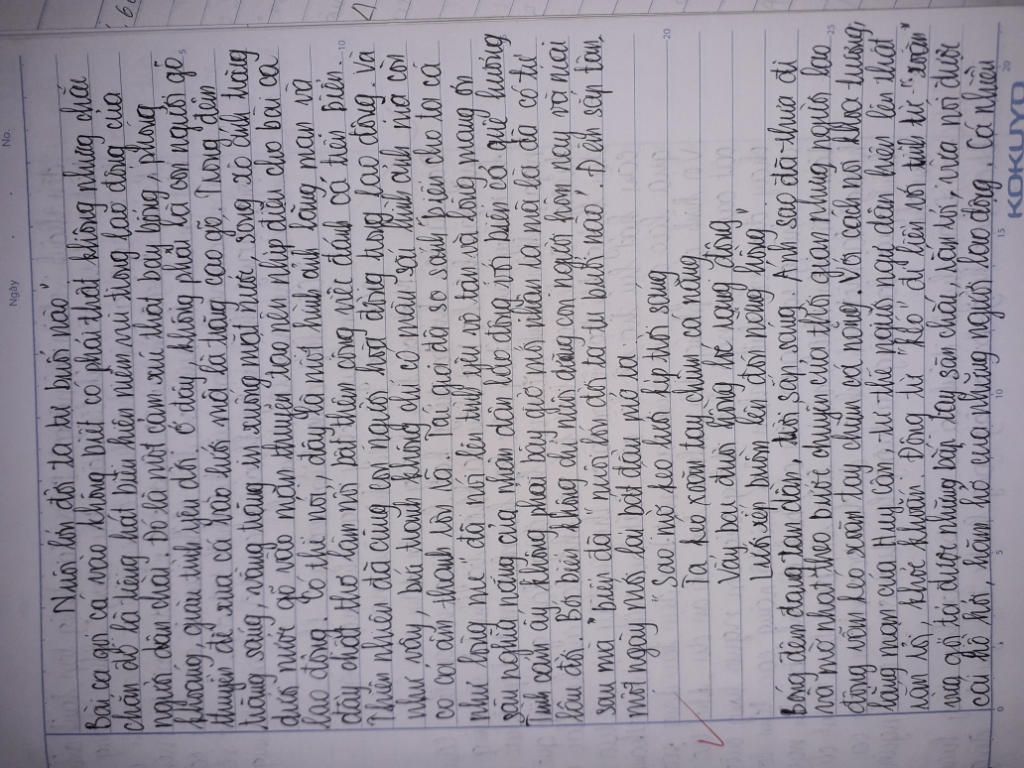 No.
Ngày
Nuôi lớn đời ta tự buổi nào"
Bài ca gọi cá vào không biết có phải thật không nhưng chắc
chắn đó là tiếng hát biểu hiện niềm vui trong lao động của
người dân chài. Đó là một cảm xúc thật bay bổng, phóng
khoáng, giàu tình yêu đời. Ở đây không phải là con người gõ
thuyền để xua cá vào lưới mà là trăng cao gõ. Trong đêm
trăng sáng, vầng trăng in xuống mặt nước, sóng xô ánh trăng
dưới nước gõ vào mạn thuyền tạo nên nhịp điệu cho bài ca
lao động. Có thể nói, đây là một hình ảnh lãng mạn và
đầy chất thơ làm nổi bật thêm công việc đánh cá trên biển.
Thiên nhiên đã cùng con người hoạt động trong lao động. Và
như vậy, bức tranh không chỉ có màu sắc hình ảnh mà còn
có cả âm thanh rộn rã. Tác giả đã so sánh biển cho ta cá
như lòng mẹ đã nói lên tình yêu vô tận và lòng mang ơn
sâu nghĩa nặng của nhân dân lao động với biển cả quê hương
Tình cảm ấy không phải bây giờ mới nhận ra mà là đã có từ
lâu đời. Bởi biển không chỉ nuôi dưỡng con người hôm nay và mai
sau mà "biển đã" nuôi lớn đời ta tự buổi nào". Đến sắp tàn,
một ngày mới lại bắt đầu mở ra
Sao mờ kéo lưới kịp trời sáng
Ta kéo xoăn tay chùm cá nặng
Vảy bạc đuôi vàng lóe rạng đông
Lưới xếp buồm lên đón nắng hồng"
Bóng đêm đang tan dần, trời sắp sáng. Ánh sao đã thưa đi
và mờ nhạt theo bước chuyển của thời gian nhưng người lao
động vẫn kéo xoăn tay chùm cá nặng. Với cách nói khoa trương,
lãng mạn của Huy Cận, tư thế người ngư dân hiện lên thật
rắn rỏi, khỏe khoắn. Động từ "kéo" đi liền với tính từ "xoăn"
vừa gợi tả được những bắp tay săn chắc, rắn rỏi, vừa nói được
cái hồ hởi, hăm hở của những người lao động. Cá nhiều
5
10
20
25
0
5
10
15
20
KOKUYO